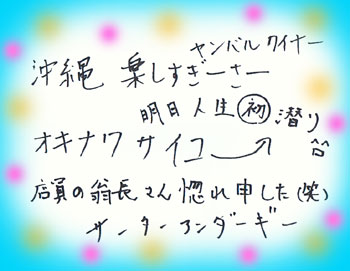 ヤンバルクイナー
沖縄 楽しすぎーさー
明日人生㊙初潜り
オキナワサイコー
店員の翁長さん惚れ申した(笑)
サーターアンダーギー